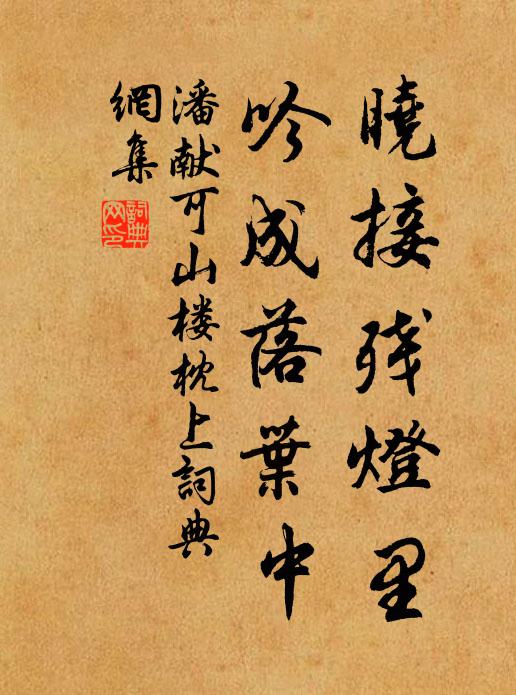 曉接残燈里
吟成落葉中
潘献可山楼枕上詞典
網集
詞典網印